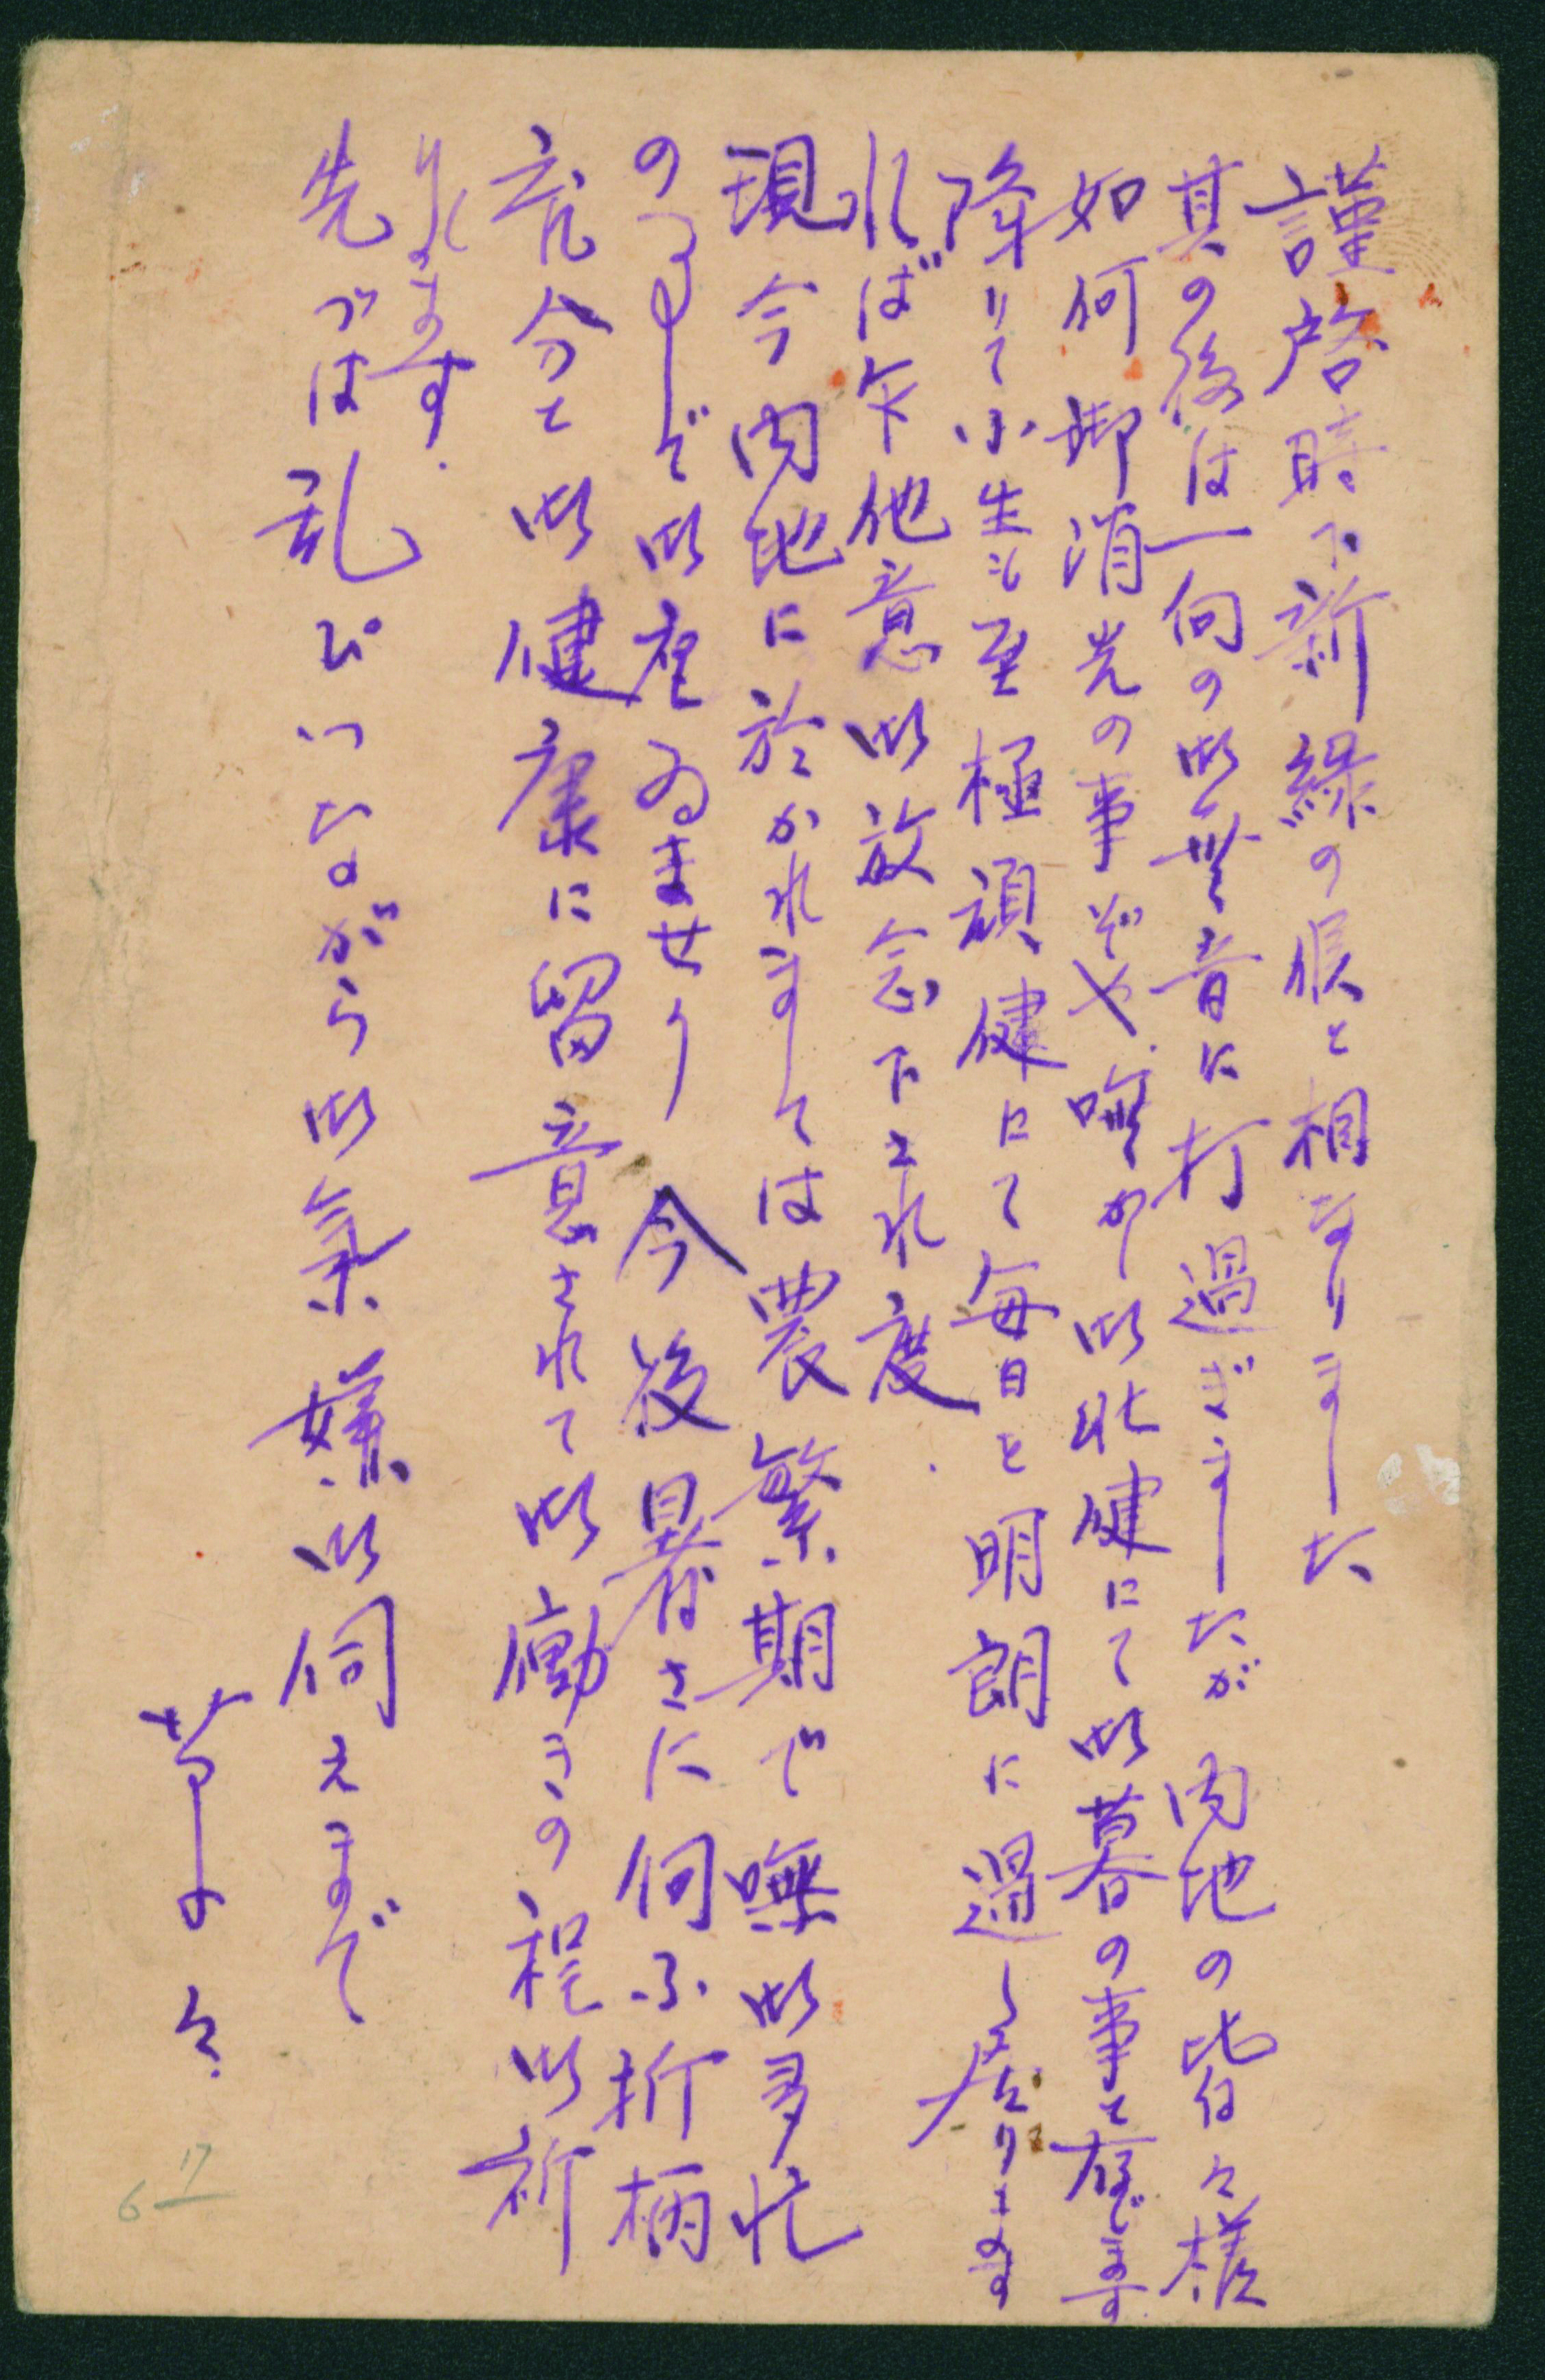 謹啓時下新緑の候と相なりました
其の後は一向の御無音に打過ぎましたが内地の皆々様
如何御消光の事ぞや、嘸かし御壮健にて御暮の事と存じます
降りて小生も至極頑健にて毎日を明朗に過し居ります
れば乍他意御放念下され度.
現今内地に於かれましては農繁期で嘸御多忙
の事で御座ゐませう 今後暑さに向ふ折柄
充分と御健康に留意されて御働きの程御祈
りします.
先づは乱ひつながら御氣嫌御伺えまで
草々
6 17